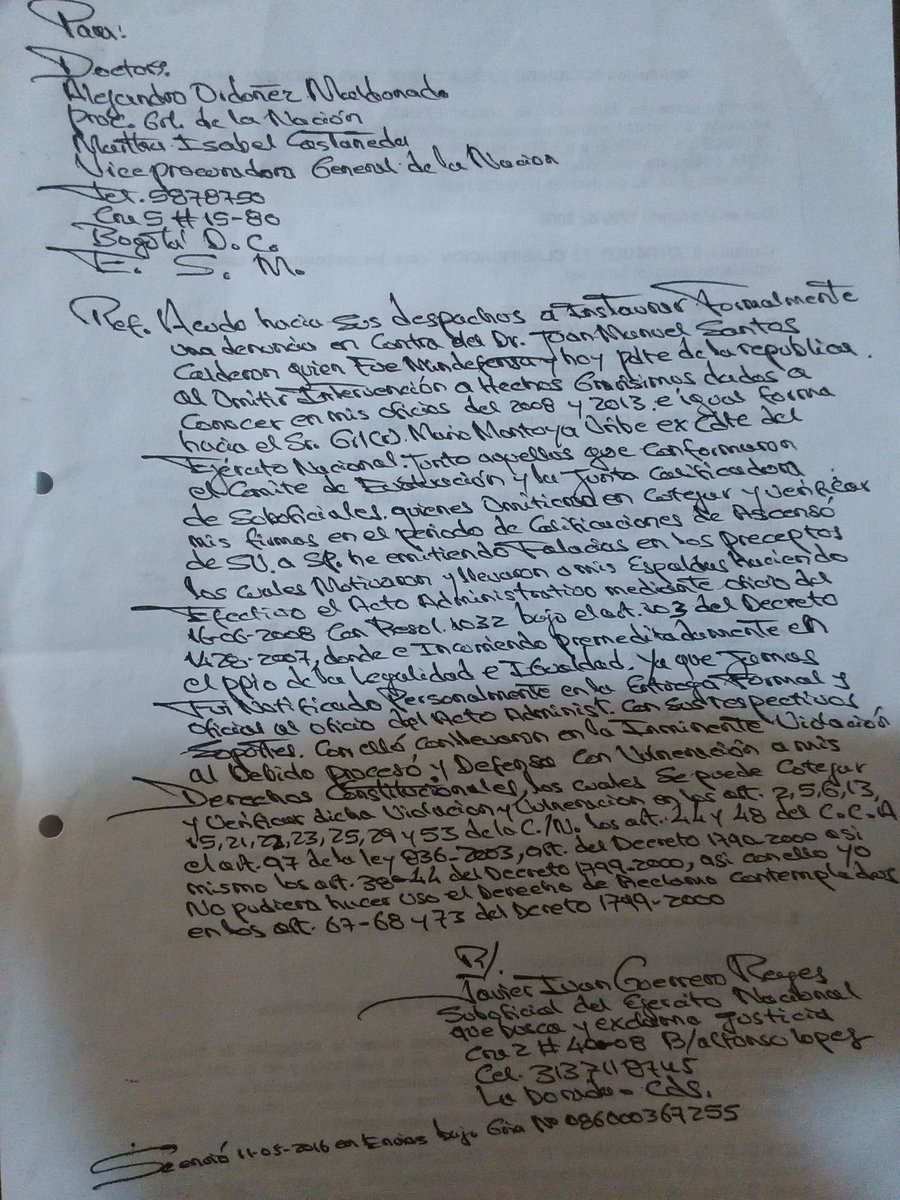 Para:
Doctores.
Alejandro Ordoñez Maldonado
Proc. Grl. de la Nación
Martha Isabel Castañeda
Viceprocuradora General de la Nacion
Tel. 5878750
Cra 5 # 15-80
Bogotá D.C.
E. S. M.
Ref. Acudo hacia sus despachos a Instaurar Formalmente
una denuncia en Contra del Dr. Juan Manuel Santos
Calderon quien Fue Mindefensa y hoy pdte de la republica.
al Omitir Intervención a Hechos Gravisimos dados a
Conocer en mis oficios del 2008 y 2013. e igual forma
hacia el Sr. Gr(r). Mario Montoya Uribe ex Cdte del
Ejército Nacional. Junto aquellos que Conformaron
el Comite de Evaluación y la Junta Calificadora
de Suboficiales. quienes Omitieron en Cotejar y Verificar
mis firmas en el periodo de Calificaciones de Ascensó
de SV. a SP. he emitiendo Falacias en los preceptos
los cuales Motivaron y llevaron a mis Espaldas Haciendo
Efectivo el Acto Administrativo mediante oficio del
16-06-2008 Con Resol. 1032 bajo el art. 103 del Decreto
1428-2007, donde e Incurriendo premeditadamente en
el ppio de la Legalidad e Igualdad. Ya que Jamas
Fui Notificado Personalmente en la Entrega Formal y
oficial al oficio del Acto Administ. Con Sus respectivos
Soportes. Con elló Conllevaron en la Inminente Violación
al Debido procesó y Defensa Con Vulneración a mis
Derechos Constitucionales, los cuales Se puede Cotejar
y Verificar dicha Violacion y Vulneracion en los art. 2,5,6,13,
15,21,22,23,25,29 y 53 de la C./N. los art. 44 y 48 del C.C.A
el art. 97 de la ley 836-2003, art. del Decreto 1790-2000 asi
mismo los art. 38-44 del Decreto 1799-2000, asi con ello yo
No pudiera hacer Uso el Derecho de Reclamo Contemplados
en los art. 67-68 y 73 del Decreto 1799-2000
R/.
Javier Ivan Guerrero Reyes
Suboficial del Ejercito Nacional
que busca y exclama justicia
Cra 2 # 40-08 B/ alfonso lopez
Cel. 3137118745
La Dorada - Cds.
Se envió 11-05-2016 en Envias bajo Guia No 086000367255